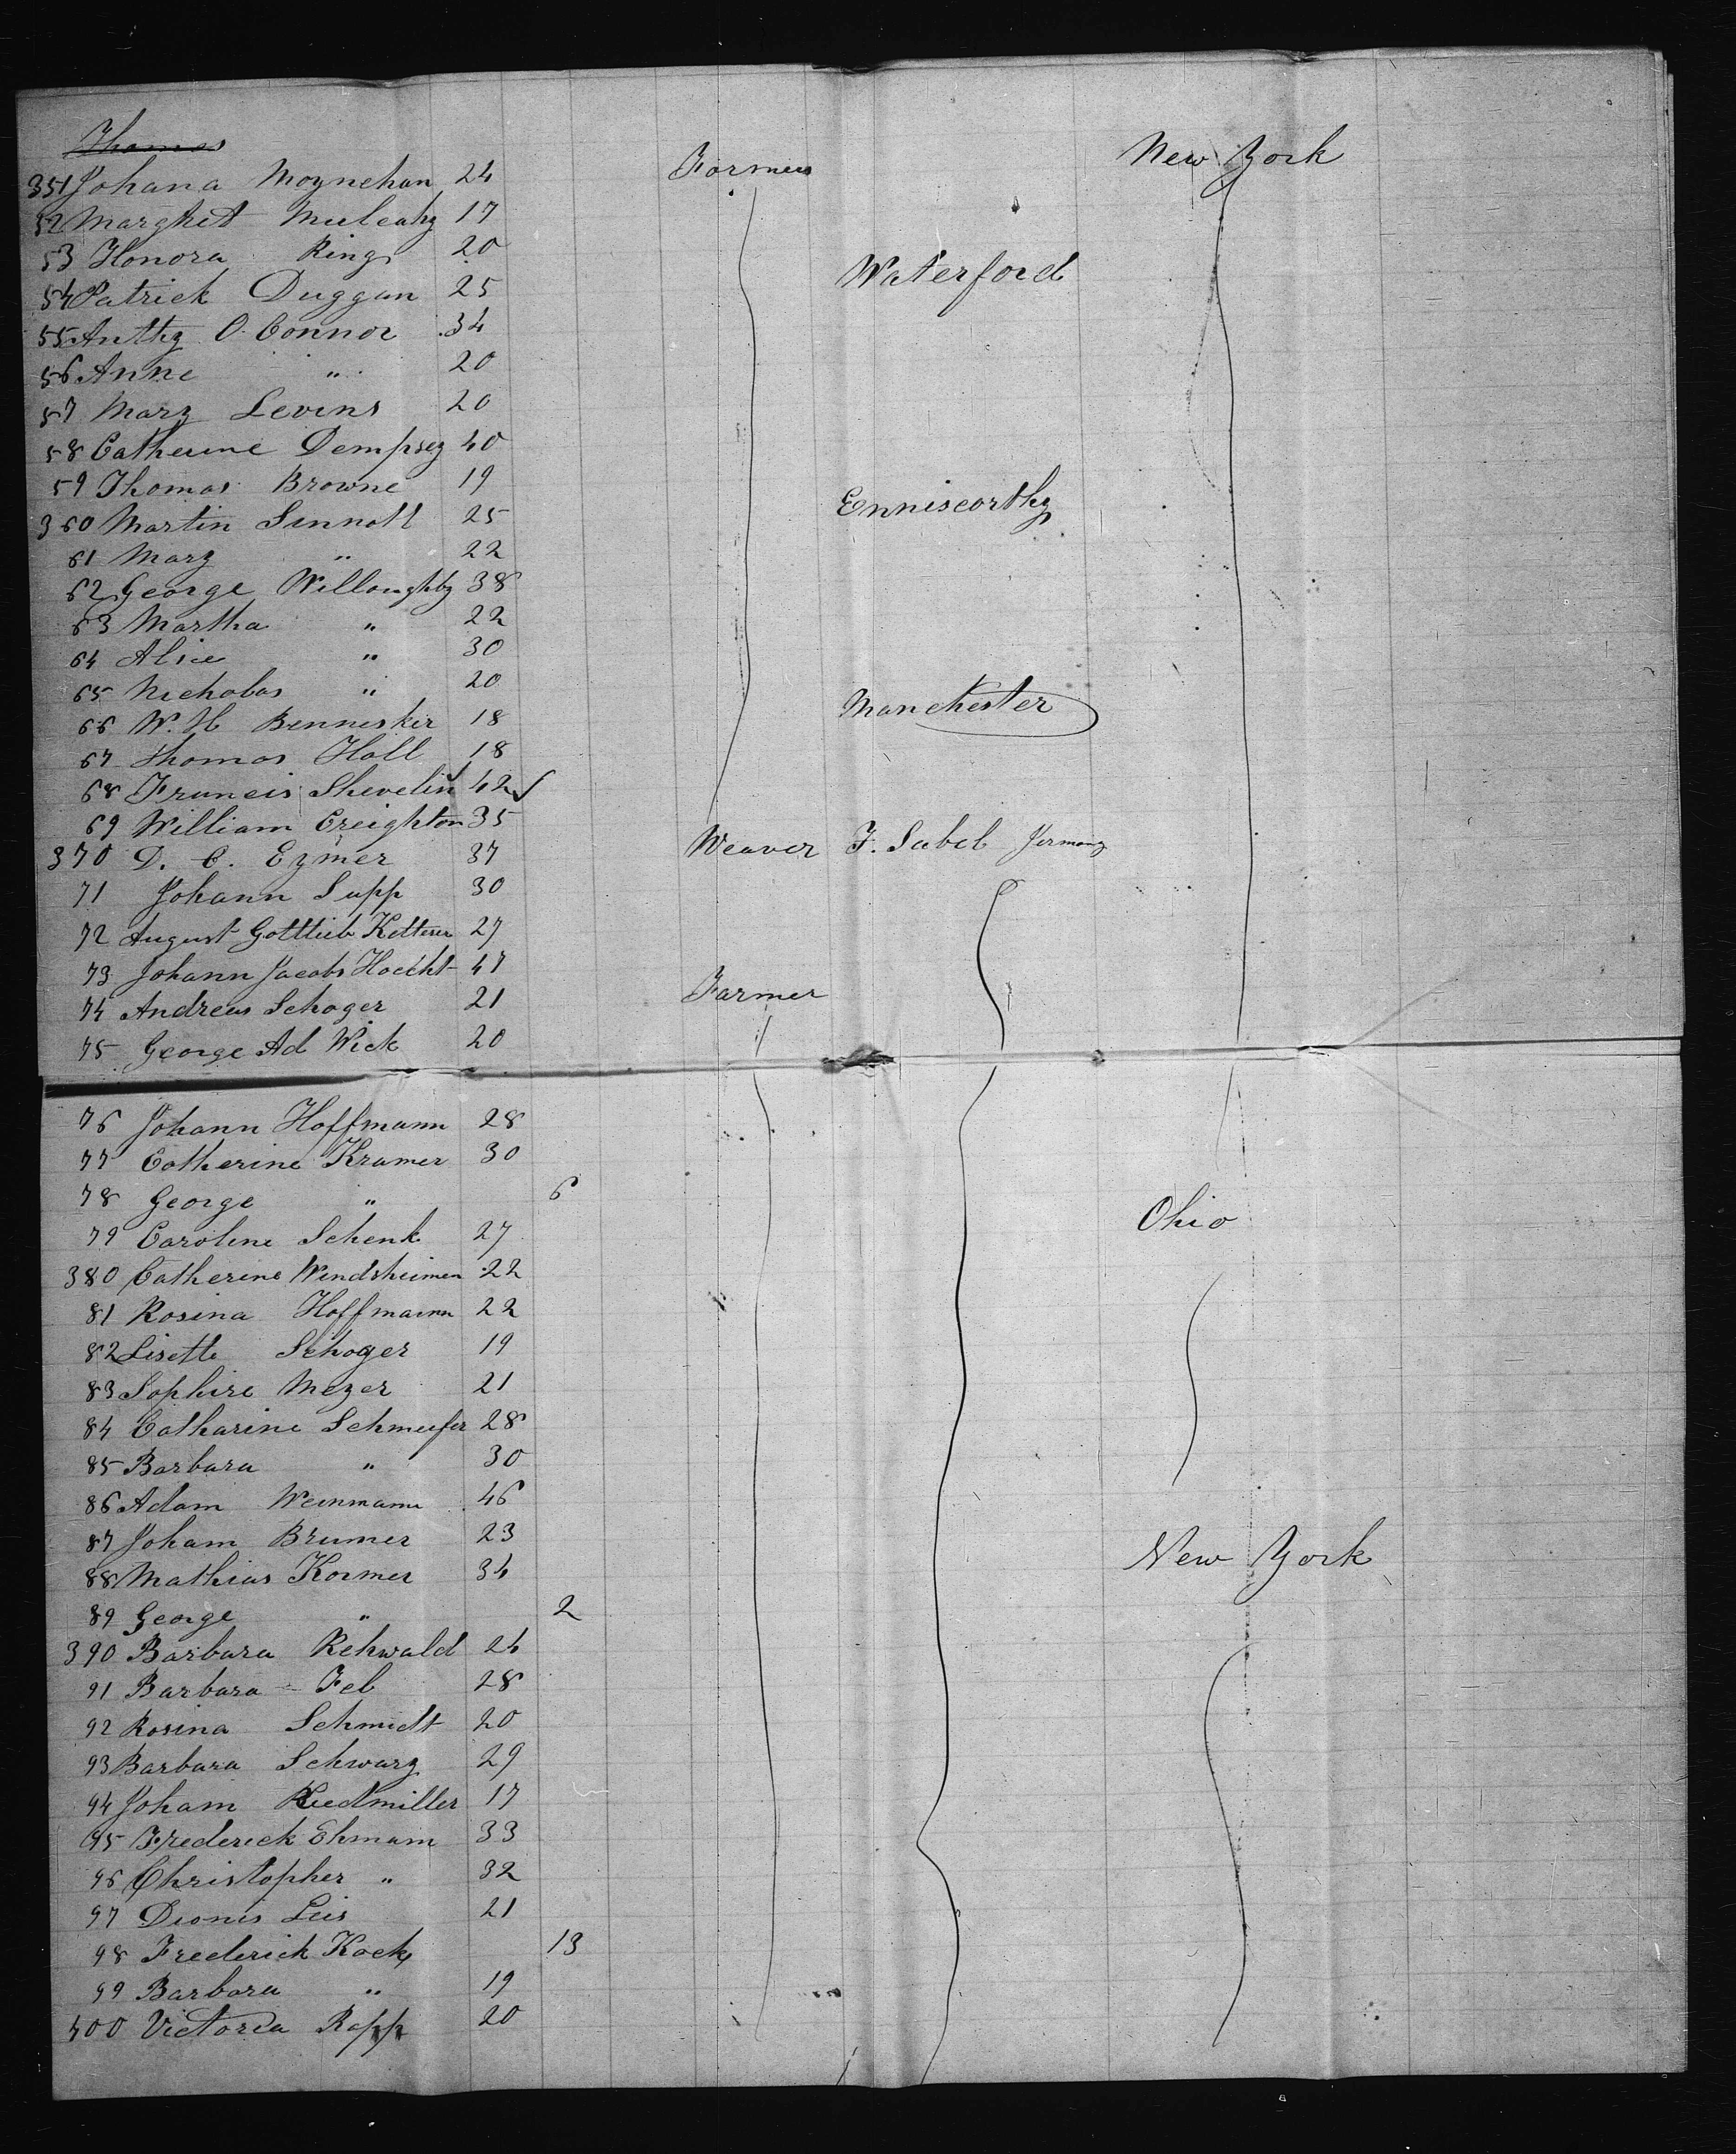 Thomas
351 Johana Moynehan 24 Farmers New York
52 Marghet Mulcahy 17
53 Honora Ring 20 Waterford
54 Patrick Duggan 25
55 Anthy O Connor 34
56 Anne " 20
57 Mary Levins 20
58 Catherine Dempsey 40
59 Thomas Browne 19 Enniscorthy
360 Martin Sinnott 25
61 Mary " 22
62 George Willoughby 38
63 Martha " 22
64 Alice " 30
65 Nicholas " 20 Manchester
66 W. H Bennesker 18
67 Thomas Hall 18
68 Francis Shevelin 42
69 William Creighton 35
370 D. C. Eymer 37 Weaver F. Sabel Germany
71 Johann Supp 30
72 August Gottlieb Ketterer 27
73 Johann Jacobs Hoecht 47
74 Andreas Schoger 21 Farmer
75 George Ad Wick 20
76 Johann Hoffmann 28
77 Catherine Kramer 30
78 George " 6 Ohio
79 Caroline Schenk 27
380 Catherine Windsheimer 22
81 Rosina Hoffmann 22
82 Lisette Schoger 19
83 Sophire Meyer 21
84 Catharine 28
85 Barbara " 30
86 Adam Weinmann 46
87 Joham Brumer 23 New York
88 Mathias Kormer 34
89 George " 2
390 Barbara Rehwald 24
91 Barbara Fel 28
92 Rosina Schmidt 20
93 Barbara Schwarz 29
94 Joham Riedmiller 17
95 Frederick Ehmam 33
96 Christopher " 32
97 Dionis Leis 21
98 Frederick Koch 13
99 Barbara " 19
400 Victoria Rapp 20